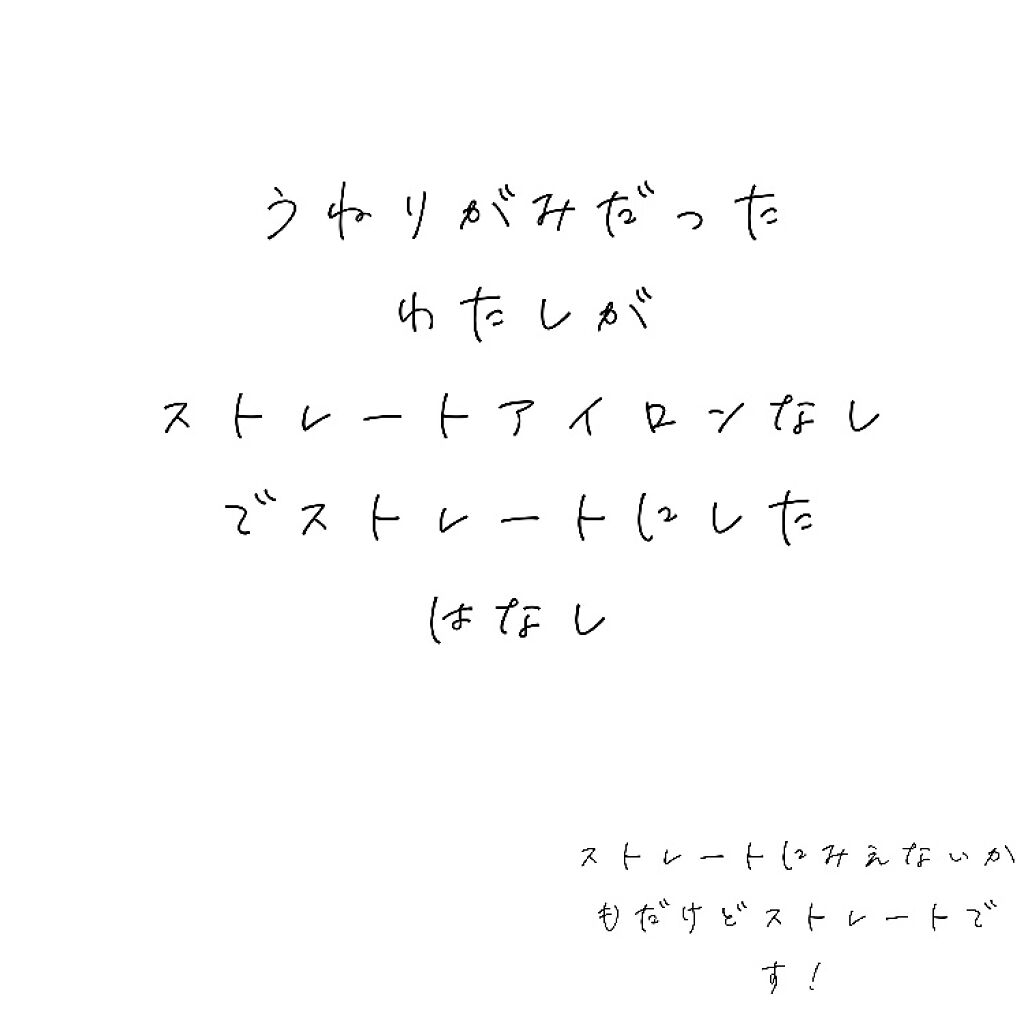 うねりがみだった
わたしが
ストレートアイロンなし
でストレートにした
はなし
ストレートにみえないか
もだけどストレートで
す！